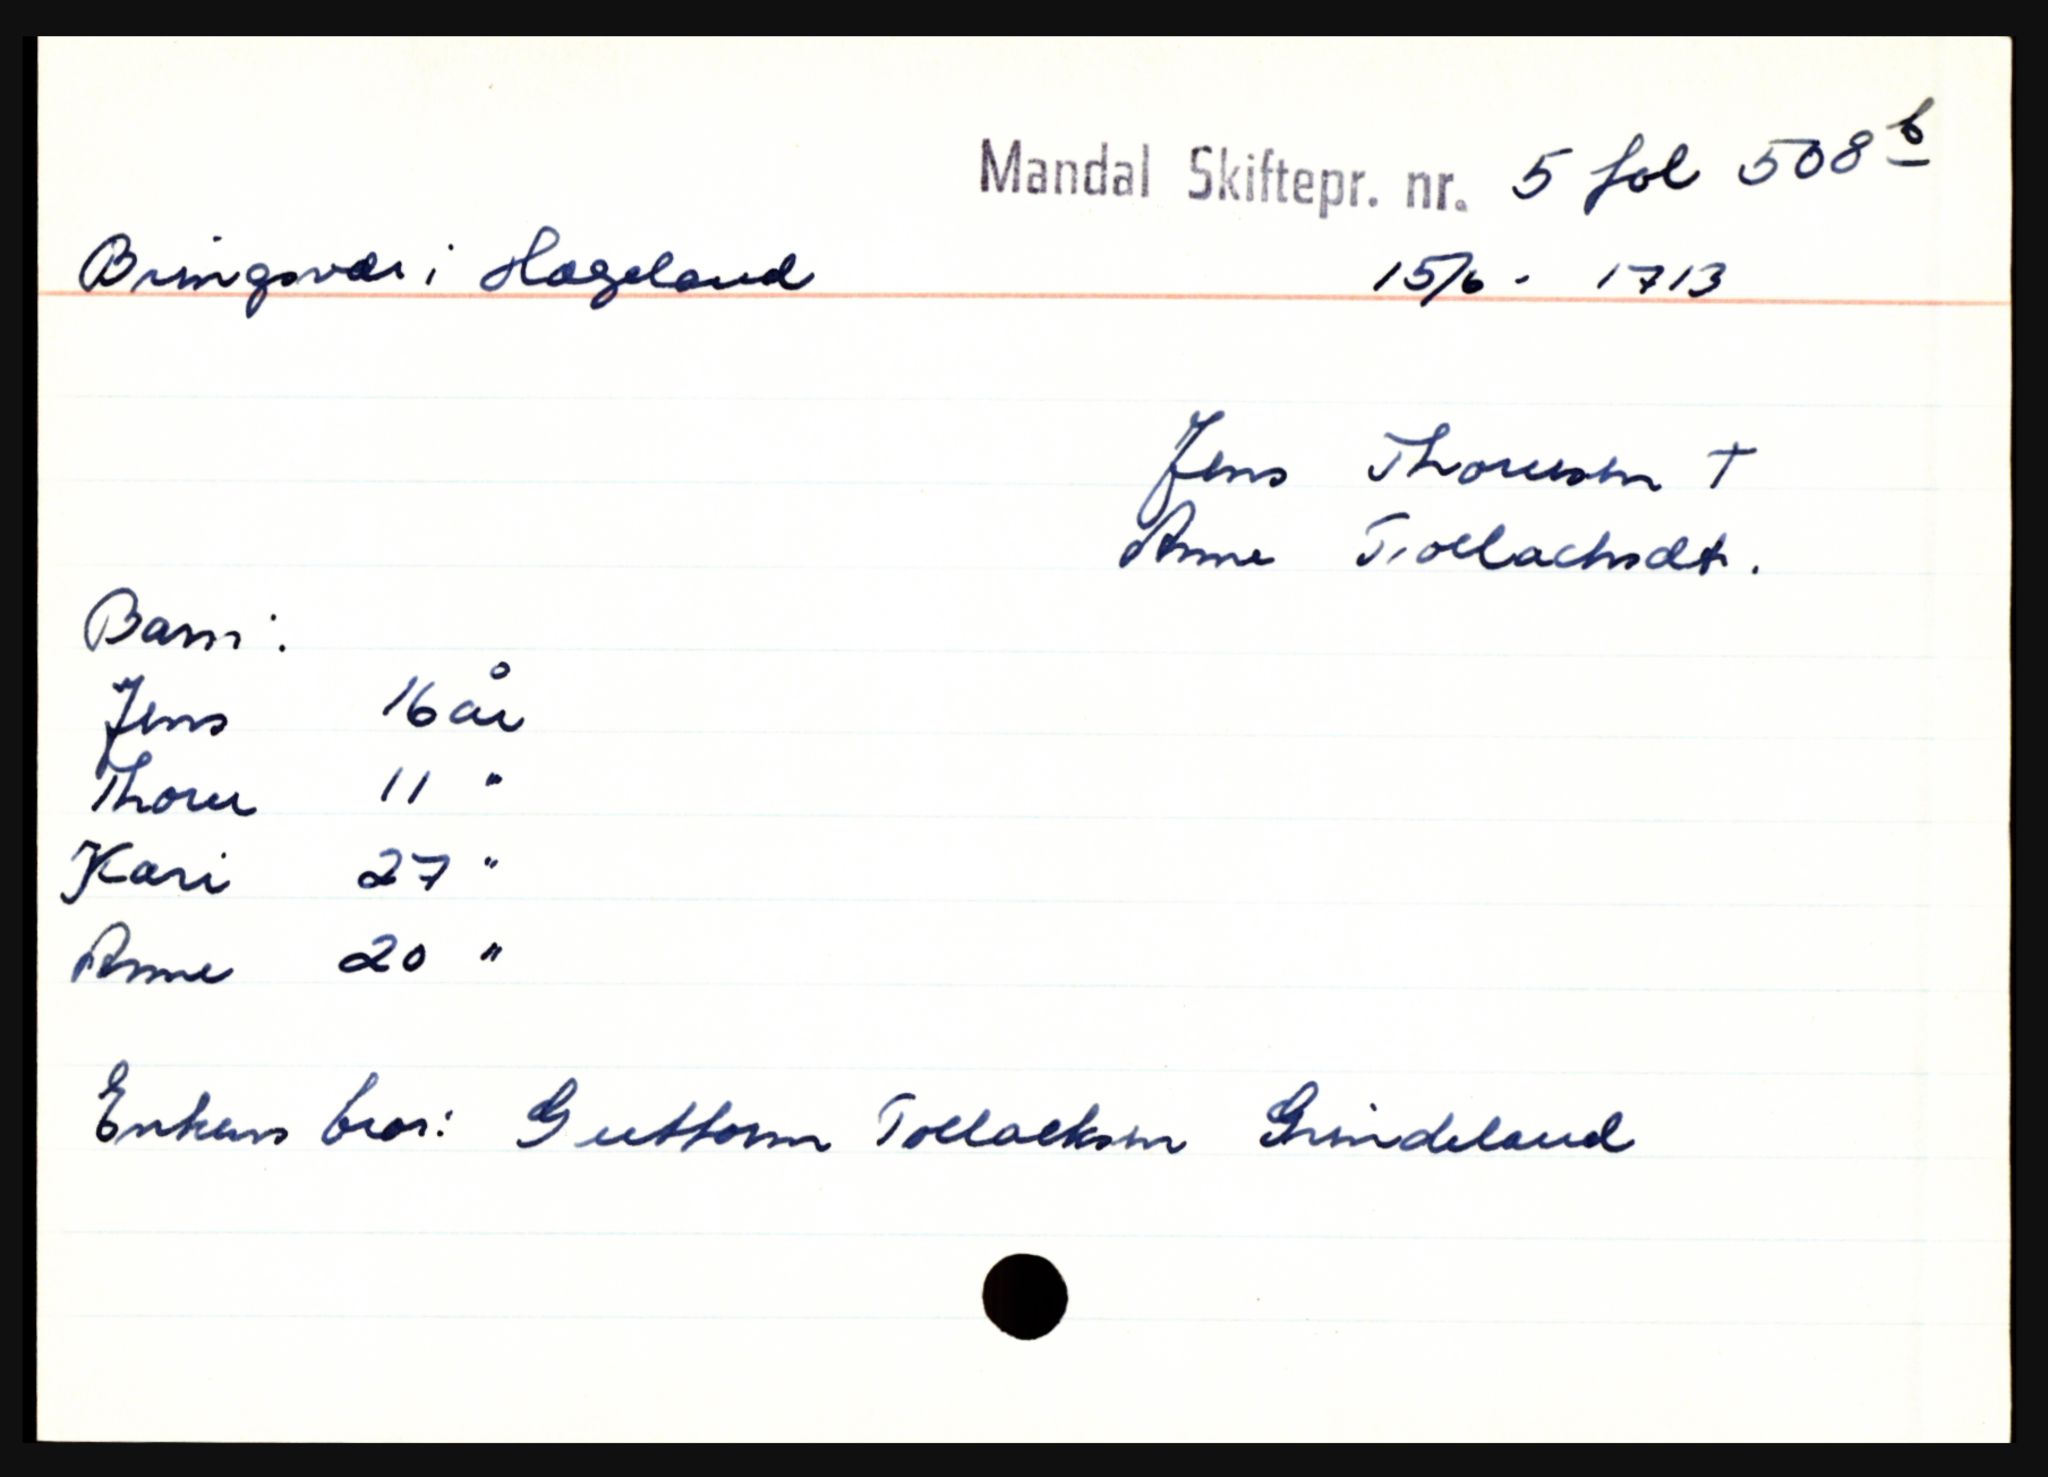 Mandal Skiftepr. nr. 5 fol 508 b
Bringsvær i Hægeland 15/6 - 1713
Jens Thoresen †
Anne Tollachsdt.
Barn:
Jens 16 år
Thore 11 "
Kari 27 "
Anne 20 "
Enkens bror: Guttorm Tollaksen Grindeland